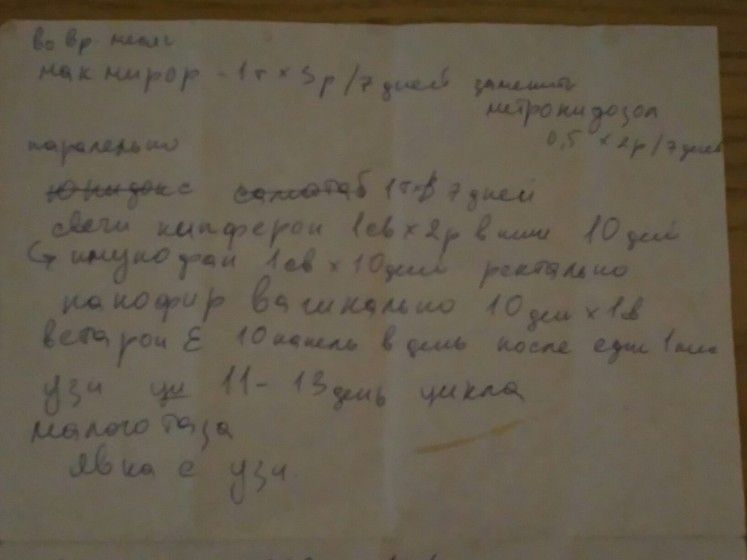 во вр
макмирор - 1т × 3р/7 дней заменить
метронидозол
0,5 × 2р/7 дней
паралельно
юнидокс солютаб 1т × 7 дней
свечи кипферон 1св × 2р в 10 дней
имунофан 1св × 10 дней ректально
вагинально 10 дней × 1св
веторон Е 10 капель в день после еды 1 мес
узи 11-13 день цикла
малого таза
явка с узи.